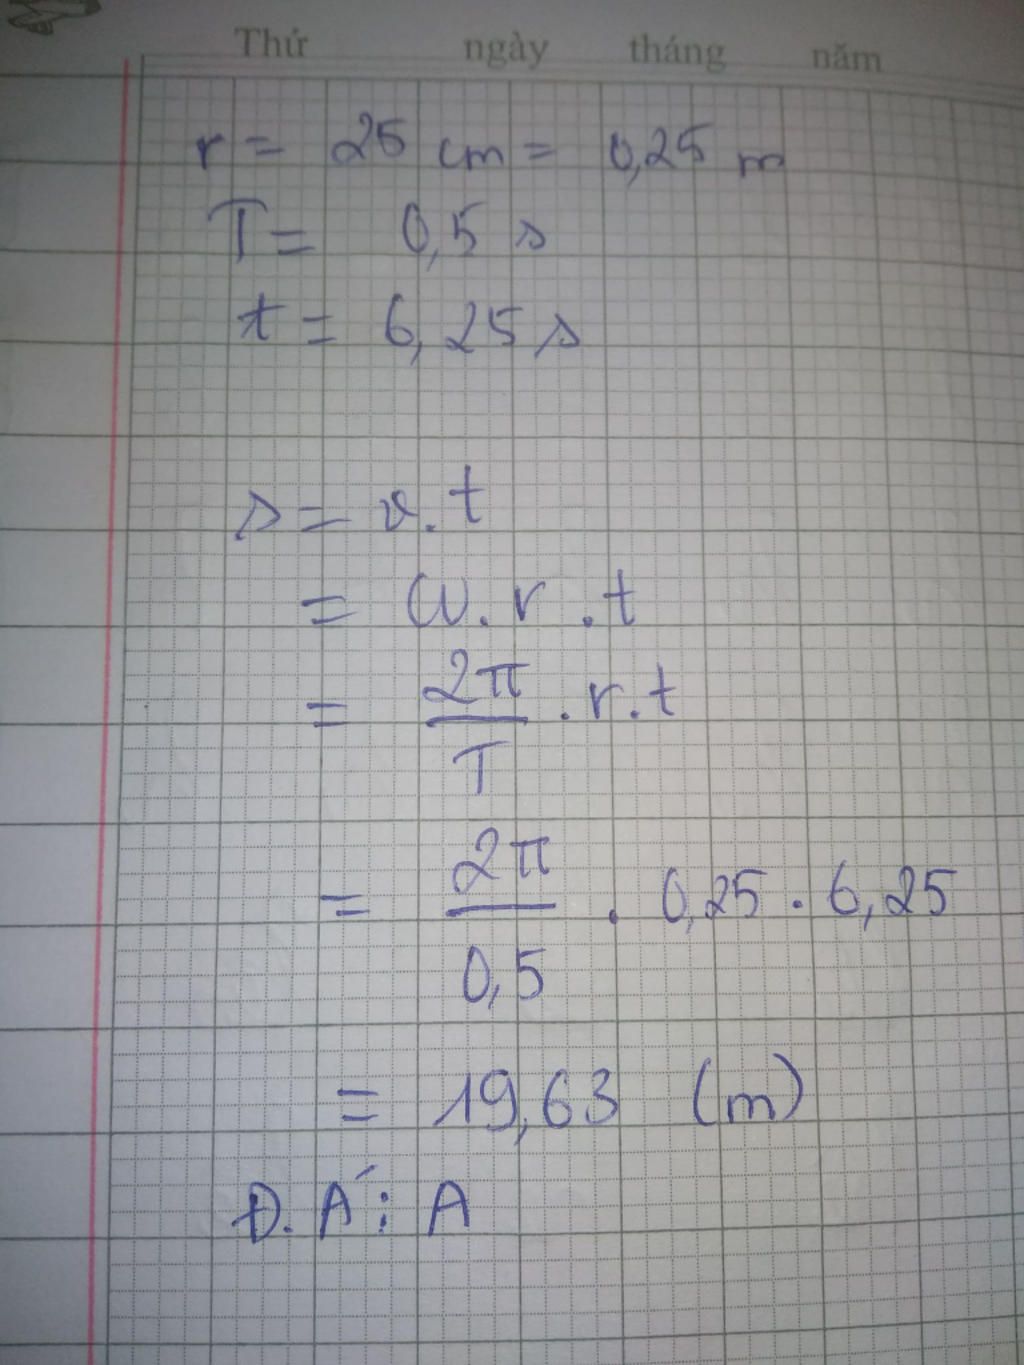 Thứ ngày tháng năm
r = 25 cm = 0,25 m
T = 0,5 s
t = 6,25 s
s = v.t
= ω.r.t
= 2π/T . r.t
= 2π/0,5 . 0,25 . 6,25
= 19,63 (m)
Đ. Á : A